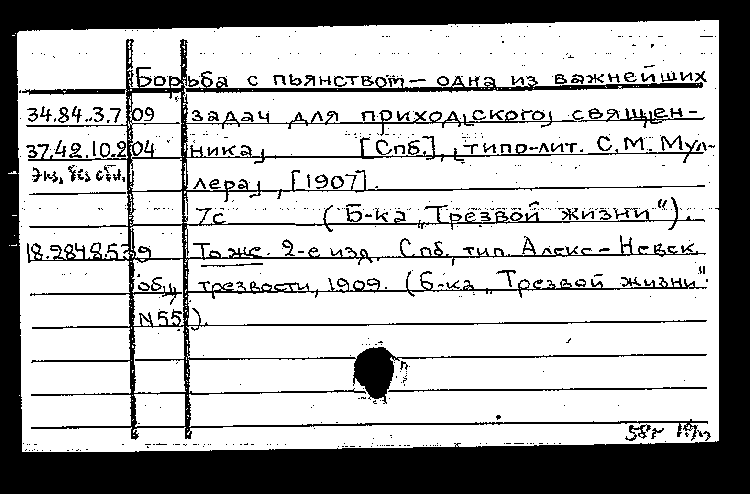 Борьба с пьянством — одна из важнейших
34.84.3.709 задач для приход[ского] священ-
37.42.10.204 ника], [Спб.], [типо-лит. С. М. Мул-
Экз. без обл. лера], [1907].
7с (Б-ка „Трезвой жизни").
18.284.8.539 То же. 2-е изд. Спб, тип. Алекс-Невск.
общ трезвости, 1909. (Б-ка „Трезвой жизни"
N55).